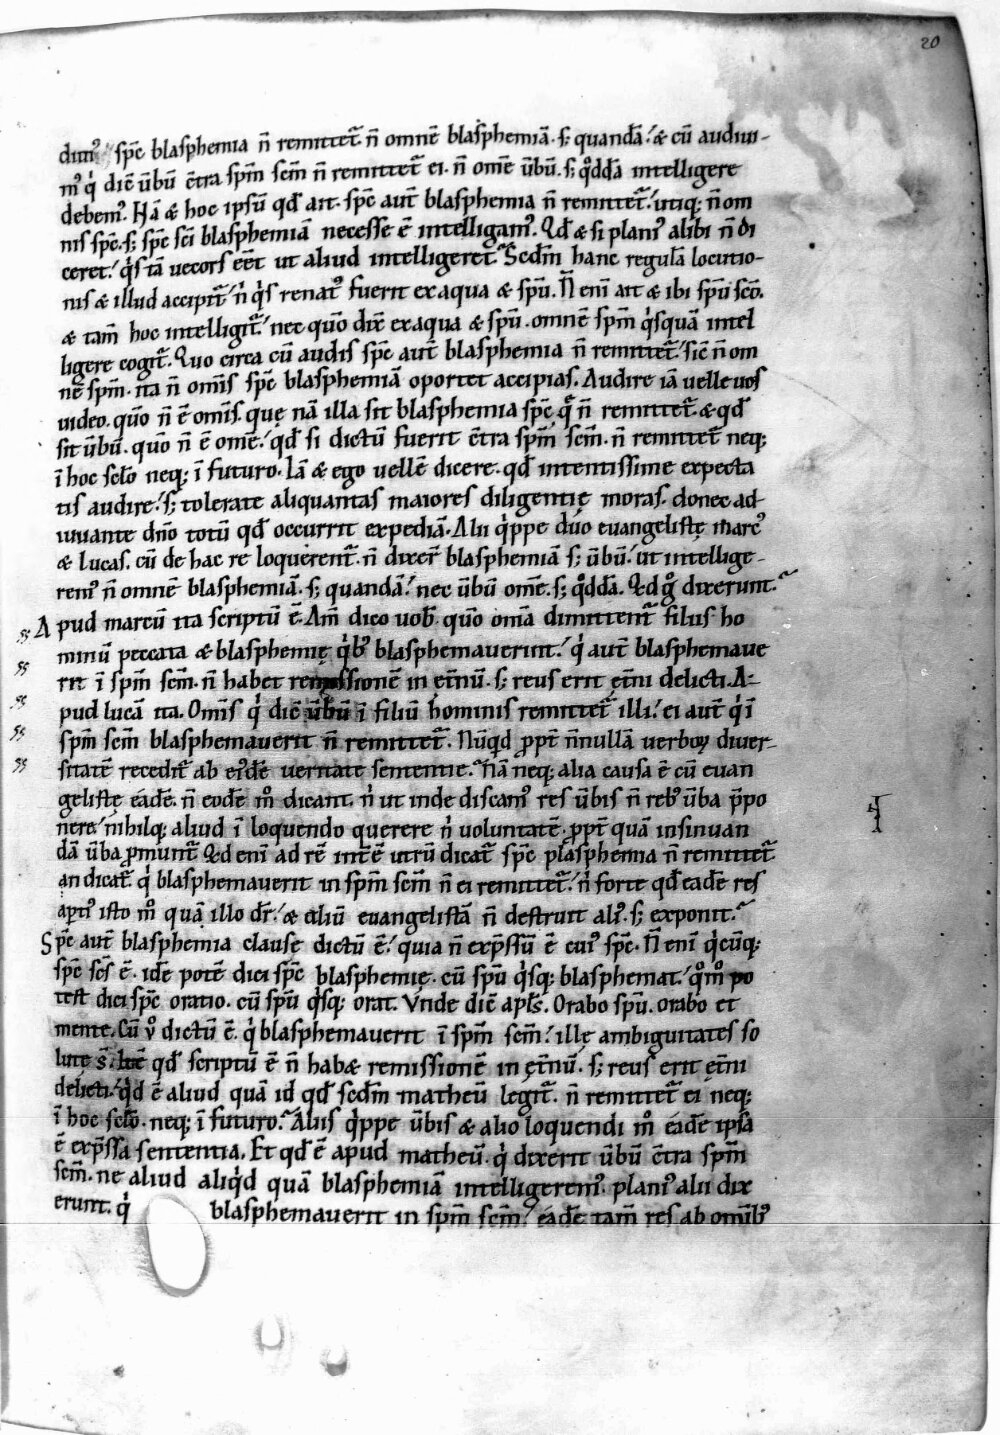 20
dim᷒ sp̅c blasphemia n̅ remittet᷑. n̅ omne̅ blasphemia̅. s; quanda̅. & cu̅ audiu-
m᷒ qͥ die̅ u̅bu̅ c̅tra sp̅m sc̅m n̅ remittet᷑ ei. n̅ ome̅ u̅bu̅. s; qͦdda̅ intelligere
debem᷒. Na̅ & hoc ipsu̅ qd̅ ait. sp̅c aut̅ blasphemia n̅ remittet᷑. utiq; n̅ om
nis sp̅c. s; sp̅c sc̅i blasphemia̅ necesse e̅ intelligam᷒. Qd̅ & si plani᷒ alibi n̅ di
ceret. qͥs ta̅ uecors ee̅t ut aliud intelligeret. Scd̅m hanc regula̅ locutio-
nis & illud accipit᷑. nͥ qͥs renat᷒ fuerit ex aqua & sp̅u. N̅ eni̅ ait & ibi sp̅u sc̅o.
& tam̅ hoc intelligit᷑. nec quo̅ dix̅ ex aqua & sp̅u. omne̅ sp̅m qͥsqua̅ intel
ligere cogit᷑. Quo circa cu̅ audis sp̅c aut̅ blasphemia n̅ remittet᷑. sic̅ n̅ om
ne̅ sp̅m. ita n̅ om̅is sp̅c blasphemia̅ oportet accipias. Audire ia̅ uelle uos
uideo. quo̅ n̅ e̅ om̅is. quę na̅ illa sit blasphemia sp̅c. q̅ n̅ remittet᷑. & qd̅
sit u̅bu̅. quo̅ n̅ e̅ ome̅. qd̅ si dictu̅ fuerit c̅tra sp̅m sc̅m. n̅ remittet᷑ neq;
i̅ hoc sclo̅ neq; i̅ futuro. Ia̅ & ego uelle̅ dicere. qd̅ intentissime expecta
tis audire. s; tolerate aliquantas maiores diligentię moras. donec ad-
iuuante dn̅o totu̅ qd̅ occurrit expedia̅. Alii qͥppe duo euangelistę marc᷒
& lucas. cu̅ de hac re loquerent᷑. n̅ dixer̅ blasphemia̅ s; u̅bu̅. ut intellige-
rem᷒ n̅ omne̅ blasphemia̅. s; quanda̅. nec u̅bu̅ ome̅. s; qͦdda̅. Qd gͦ dixerunt.
Apud marcu̅ ita scriptu̅ e̅. Am̅ dico uob̅. quo̅ om̅a dimittent᷑ filiis ho
minu̅ peccata & blasphemię qͥb᷒ blasphemauerint. qͥ aut̅ blasphemaue
rit i̅ sp̅m sc̅m. n̅ habet remissione̅ in ęt̅nu̅. s; reus erit ęt̅ni delicti. A-
pud luca̅ ita. Om̅is qͥ dic̅ u̅bu̅ i̅ filiu̅ hominis remittet᷑ illi. ei aut̅ qͥ i̅
sp̅m sc̅m blasphemauerit n̅ remittet᷑. Nu̅qͥd ꝓpt̅ n̅nulla̅ uerboꝝ diuer-
sitate̅ recedit᷑ ab ei᷒de̅ ueritate sententie. Na̅ neq; alia causa e̅ cu̅ euan
gelistę eade̅. n̅ eode̅ mͦ dicant. nͥ ut inde discam᷒ res u̅bis n̅ reb᷒ u̅ba p̅po
nere. nihilq; aliud i̅ loquendo querere nͥ uoluntate̅. ꝓpt̅ qua̅ insinuan
da̅ u̅ba ꝓmunt᷑. Qd eni̅ ad re̅ int̅e̅ utru̅ dicat᷑ sp̅c plasphemia n̅ remittet᷑
an dicat᷑. qͥ blasphemauerit in sp̅m sc̅m n̅ ei remittet᷑. nͥ forte qd̅ eade̅ res
apti᷒ isto mͦ qua̅ illo dr̅. & aliu̅ euangelista̅ n̅ destruit ali᷒. s; exponit.
Sp̅c aut̅ blasphemia clause dictu̅ e̅. quia n̅ exp̅ssu̅ e̅ cui᷒ sp̅c. N̅ eni̅ qͥcu̅q;
sp̅c sc̅s e̅. ide̅ pote̅ dici sp̅c blasphemię. cu̅ sp̅u qͥsq; blasphemat. qͦmͦ po
test dici sp̅c oratio. cu̅ sp̅u qͥsq; orat. Vnde dic̅ apl̅s. Orabo sp̅u. orabo et
mente. Cu̅ uͦ dictu̅ e̅. qͥ blasphemauerit i̅ sp̅m sc̅m. illę ambiguitates so
lutę s̅. qd̅ scriptu̅ e̅ n̅ hab& remissione̅ in ęt̅nu̅. s; reus erit ęt̅ni
delicti. qͥd e̅ aliud qua̅ id qd̅ scd̅m matheu̅ legit᷑. n̅ remittet᷑ ei neq;
i̅ hoc sclo̅. neq; i̅ futuro. Aliis qͥppe u̅bis & alio loquendi mͦ eade̅ ipsa
e̅ exp̅ssa sententia. Et qd̅ e̅ apud matheu̅. qͥ dixerit u̅bu̅ c̅tra sp̅m
sc̅m. ne aliud aliqͥd qua̅ blasphemia̅ intelligerem᷒. plani᷒ alii dix
erunt. qͥ blasphemauerit in sp̅m sc̅m. eade̅ tam̅ res ab om̅ib᷒